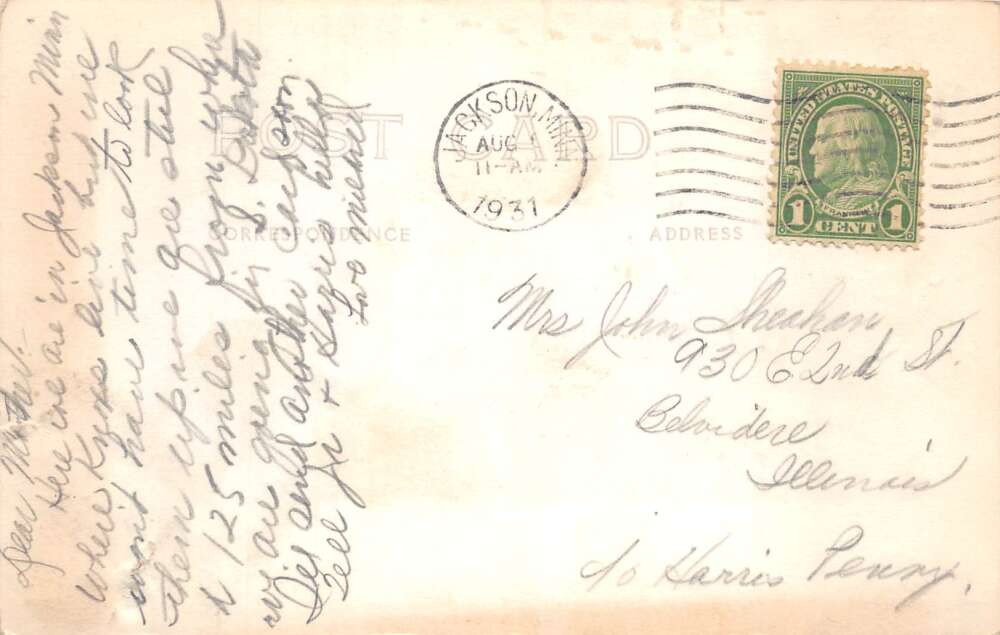 Dear Mother:-
Here we are in Jackson Minn
where Kyes live but we
wont have time to look
them up. We are still
125 miles from where
we are going in S. Dakota
I'll send another card soon
Tell Jr + Harris hello
Love Mildred
POST CARD
CORRESPONDENCE
ADDRESS
JACKSON, MINN.
AUG
11-AM
1931
UNITED STATES POSTAGE
FRANKLIN
1 CENT 1
Mrs John Sheahan
930 E 2nd St.
Belvidere
Illinois
c/o Harris Penny.